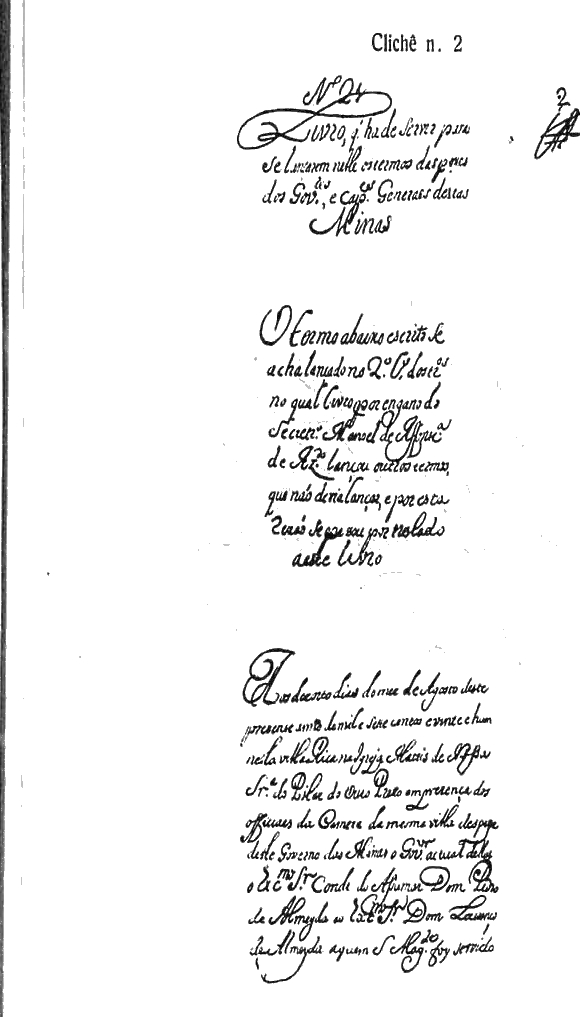 Clichê n. 2
Nº 24
2
Livro, q̃ ha de servir para
se lançarem nelle os termos das posses
dos Gov.res, e Cap.es Generaes destas
Minas
O termo abaixo escrito se
acha lançado no 2.º L.º dos ter.os
no qual Livro por engano do
Secret.º Manoel de Affonc.ª
de Az.do lançou outros termos,
que não devia lançar, e por esta
rezão se passou por treslado
a este Livro
Aos dezoito dias do mez de Agosto deste
prezente anno de mil e sete centos e vinte e hum
nesta villa Rica na Igrejȷa Matris de N. Sra
Sr.ª do Pilar do Ouro Preto em prezença dos
officiaes da Camera da mesma villa des posse
deste Governo das Minas o Gov.or actual dellas
o Ex.mo S.r Conde de Assumar Dom Pedro
de Almeyda ao Ex.mo S.r Dom Lourenço
de Almeyda a quem S Mag.de foy servido